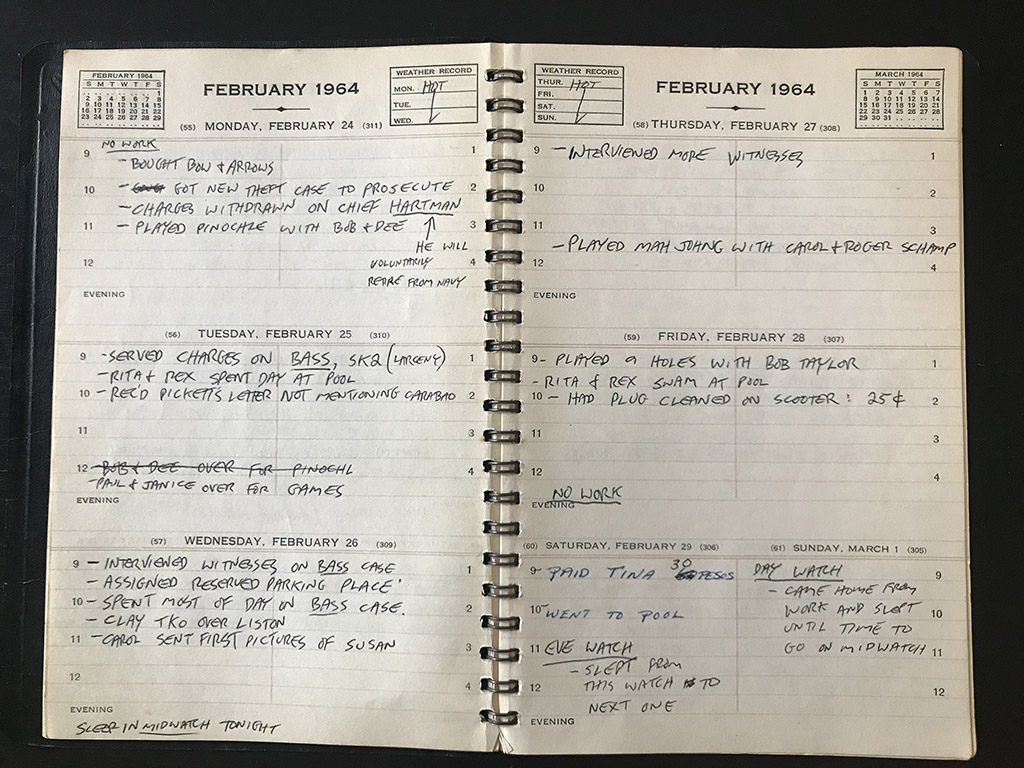 FEBRUARY 1964
S M T W T F S
1
2 3 4 5 6 7 8
9 10 11 12 13 14 15
16 17 18 19 20 21 22
23 24 25 26 27 28 29
FEBRUARY 1964
WEATHER RECORD
MON. HOT
TUE.
WED.
(55) MONDAY, FEBRUARY 24 (311)
NO WORK
9 1
- BOUGHT BOW & ARROWS
10 - GOT NEW THEFT CASE TO PROSECUTE 2
- CHARGES WITHDRAWN ON CHIEF HARTMAN
11 - PLAYED PINOCHLE WITH BOB & DEE 3
HE WILL
12 VOLUNTARILY 4
RETIRE FROM NAVY
EVENING
(56) TUESDAY, FEBRUARY 25 (310)
9 - SERVED CHARGES ON BASS, SK2 (LARCENY) 1
- RITA & REX SPENT DAY AT POOL
10 - REC'D PICKETT'S LETTER NOT MENTIONING CARABAO 2
11 3
12 - BOB & DEE OVER FOR PINOCHL 4
- PAUL & JANICE OVER FOR GAMES
EVENING
(57) WEDNESDAY, FEBRUARY 26 (309)
9 - INTERVIEWED WITNESSES ON BASS CASE 1
- ASSIGNED RESERVED PARKING PLACE!
10 - SPENT MOST OF DAY ON BASS CASE. 2
- CLAY TKO OVER LISTON
11 - CAROL SENT FIRST PICTURES OF SUSAN 3
12 4
EVENING
SLEEP IN MIDWATCH TONIGHT
WEATHER RECORD
THUR. HOT
FRI.
SAT.
SUN.
FEBRUARY 1964
MARCH 1964
S M T W T F S
1 2 3 4 5 6 7
8 9 10 11 12 13 14
15 16 17 18 19 20 21
22 23 24 25 26 27 28
29 30 31
(58) THURSDAY, FEBRUARY 27 (308)
9 - INTERVIEWED MORE WITNESSES 1
10 2
11 3
- PLAYED MAH JOHNG WITH CAROL & ROGER SCHAMP
12 4
EVENING
(59) FRIDAY, FEBRUARY 28 (307)
9 - PLAYED 9 HOLES WITH BOB TAYLOR 1
- RITA & REX SWAM AT POOL
10 - HAD PLUG CLEANED ON SCOOTER: 25¢ 2
11 3
12 4
NO WORK
EVENING
(60) SATURDAY, FEBRUARY 29 (306)
9 - PAID TINA 30 PESOS
10 - WENT TO POOL
11 EVE WATCH
- SLEPT FROM
12 THIS WATCH TO
NEXT ONE
EVENING
(61) SUNDAY, MARCH 1 (305)
DAY WATCH 9
- CAME HOME FROM
WORK AND SLEPT 10
UNTIL TIME TO
GO ON MIDWATCH 11
12